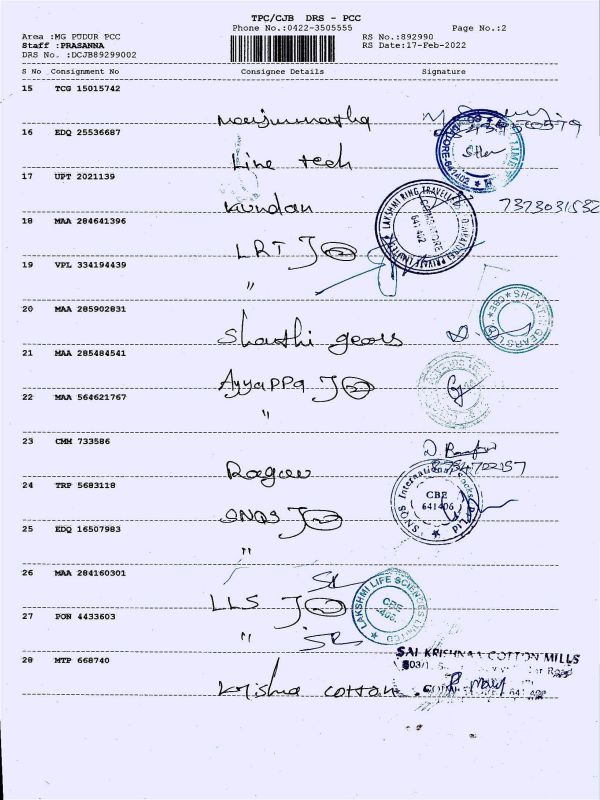 TPC/CJB DRS - PCC
Phone No.:0422-3505555 Page No.:2
Area :MG PUDUR PCC RS No.:892990
Staff :PRASANNA RS Date:17-Feb-2022
DRS No. :DCJB89299002
S No Consignment No Consignee Details Signature
15 TCG 15015742
Manjunatha
16 EDQ 25536687
Line tech
17 UPT 2021139
Kundan 7373031532
18 MAA 284641396
LRT
LAKSHMI RING TRAVELLERS
COIMBATORE
641 402
19 VPL 334194439
"
20 MAA 285902831
Shanthi gears
SHANTHI GEARS
CBE
21 MAA 285484541
Ayyappa
22 MAA 564621767
"
23 CMM 733586
24 TRP 5683118
SNQS
SNQS International Socks
CBE
641406
25 EDQ 16507983
"
26 MAA 284160301
LLS
LAKSHMI LIFE SCIENCES LIMITED
CBE
27 PON 4433603
"
28 MTP 668740
Krishna cotton
SAI KRISHNAA COTTON MILLS